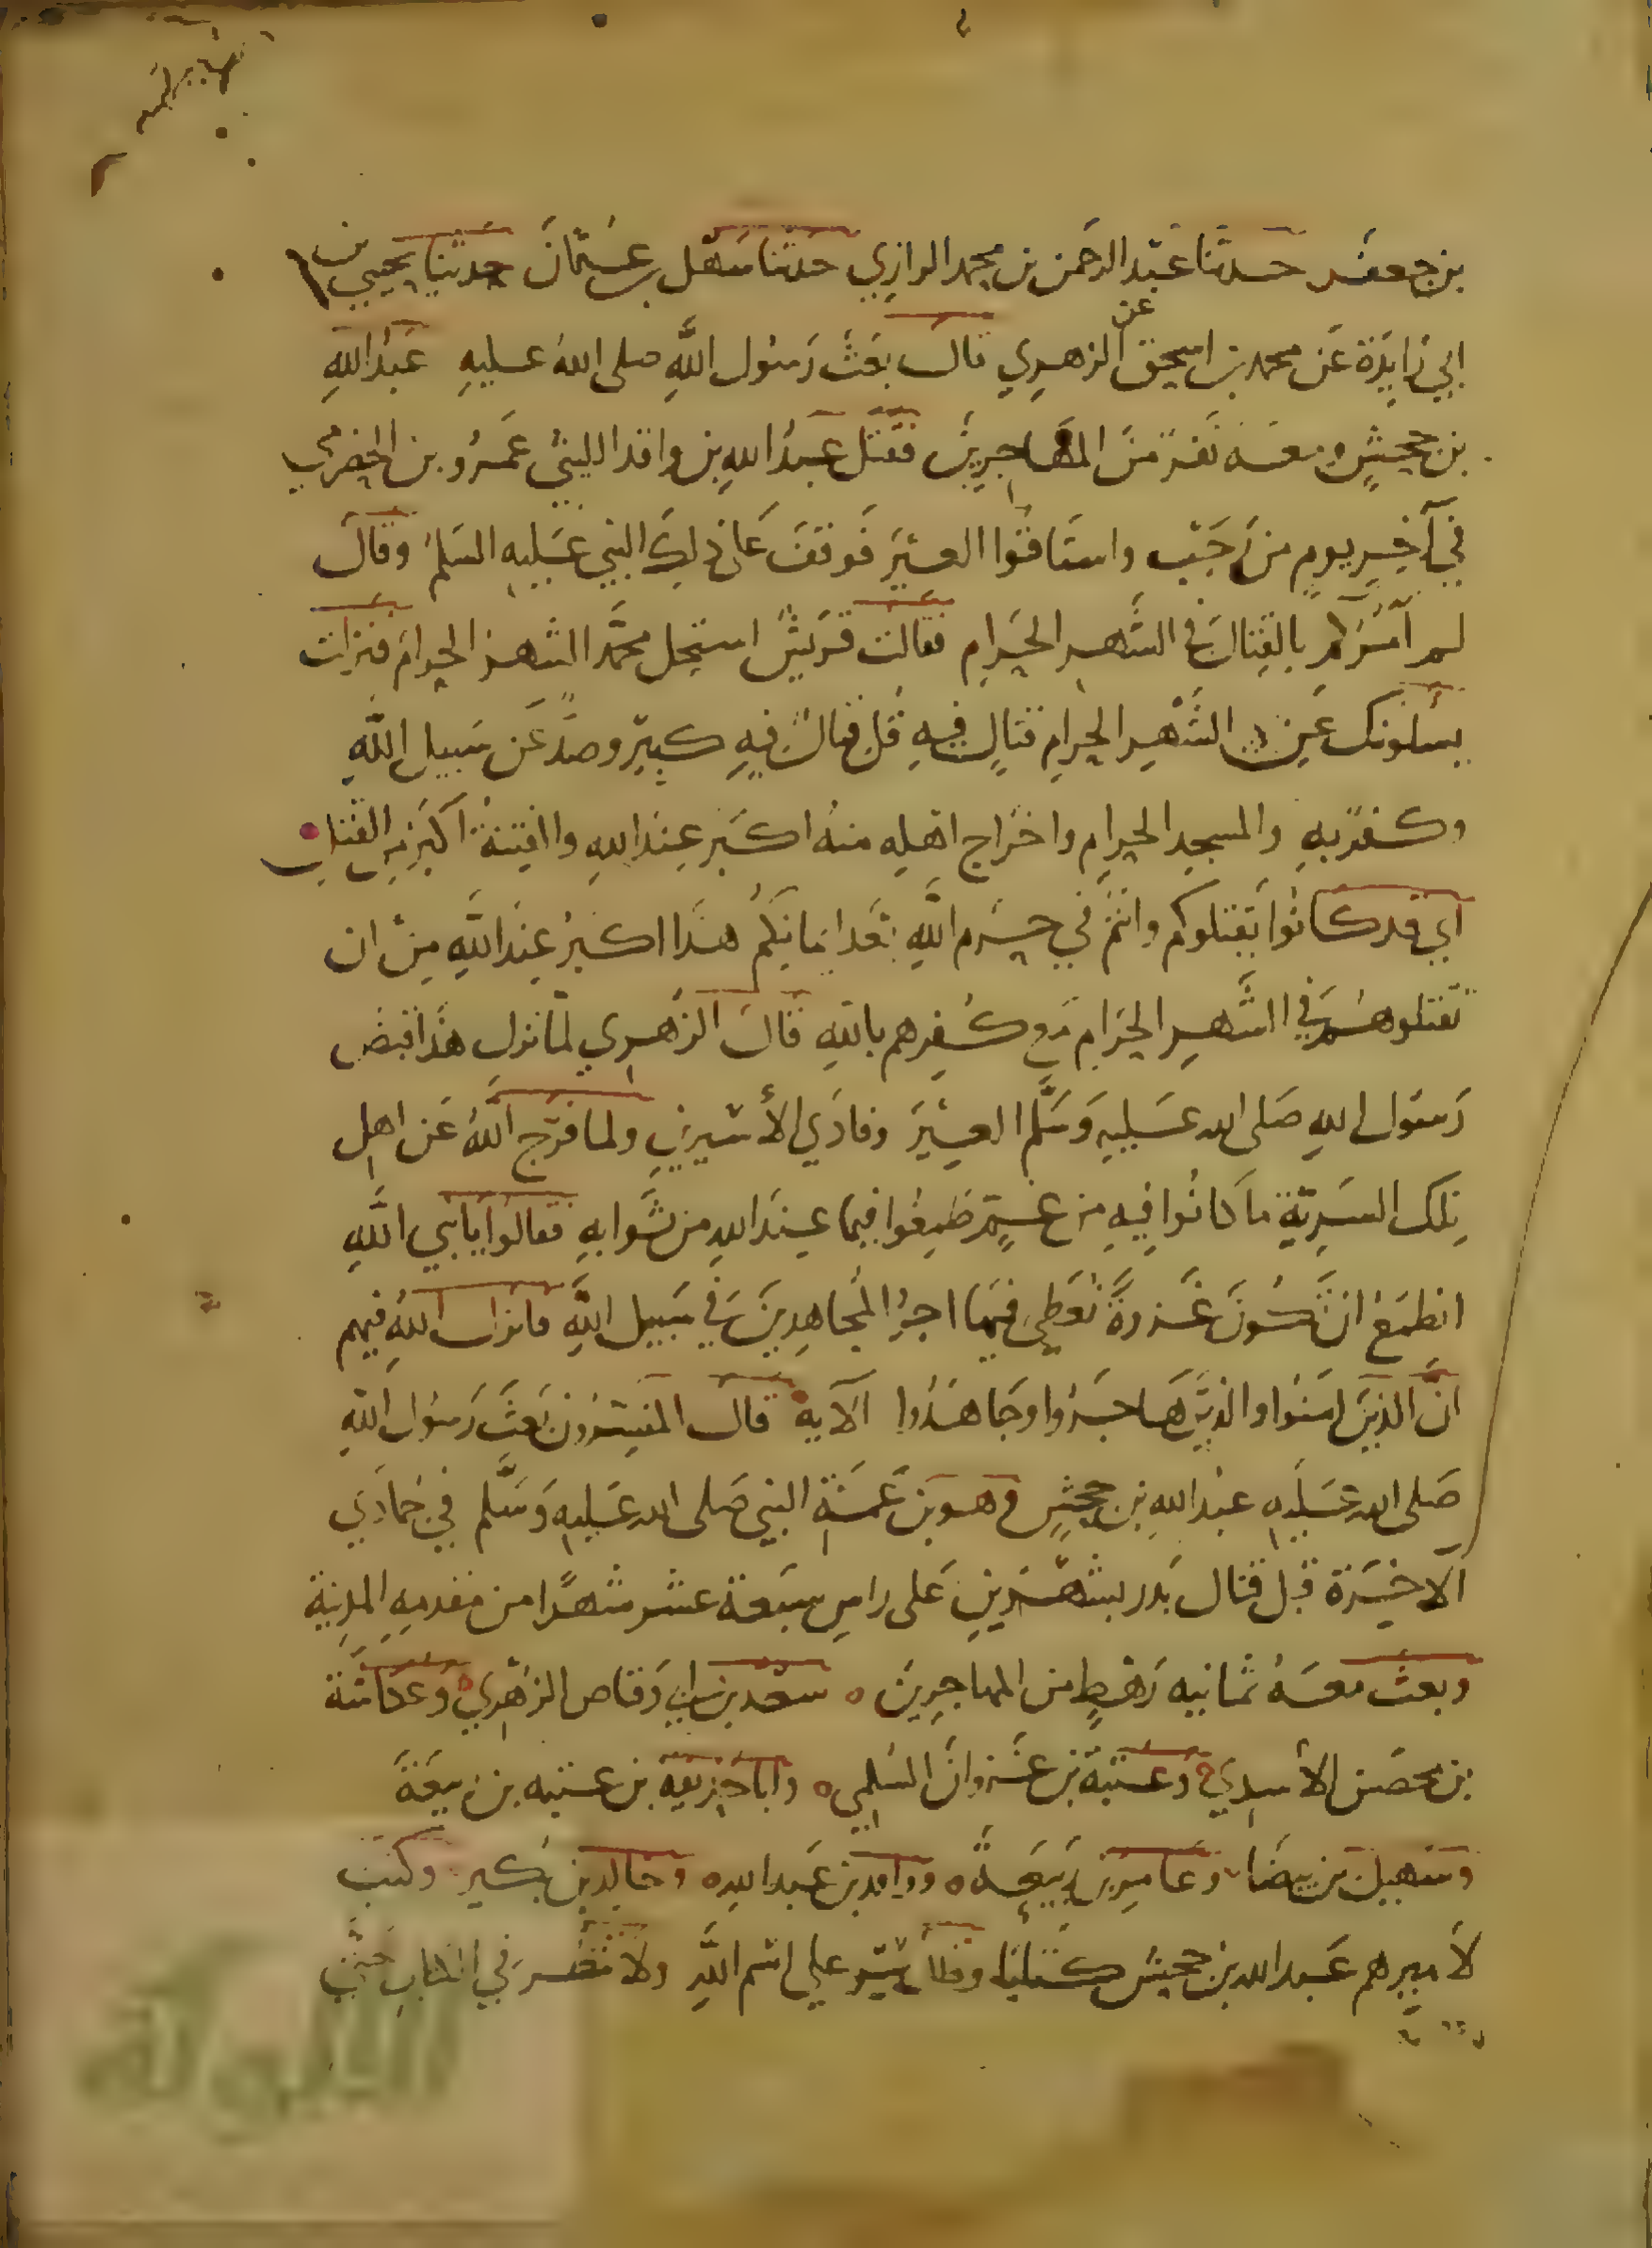 بن جعفر حدثنا عبد الرحمن بن محمد الرازي حدثنا سهل بن عثمان حدثنا يحيى بن
ابي زايدة عن محمد بن اسحق عن الزهري قال بعث رسول الله صلى الله عليه عبد الله
بن جحش ومعه نفر من المهاجرين فقتل عبد الله بن واقد الليثي عمرو بن الحضرمي
في آخر يوم من رجب واستاقوا العير فوقف على ذلك النبي عليه السلم وقال
لم آمركم بالقتال في الشهر الحرام فقالت قريش استحل محمد الشهر الحرام فنزلت
يسلونك عن الشهر الحرام قتال فيه قل قتال فيه كبير وصد عن سبيل الله
وكفر به والمسجد الحرام واخراج اهله منه اكبر عند الله والفتنة اكبر من القتل
اي قد كانوا يقتلوكم وانتم في حرم الله بعد ايمانكم هذا اكبر عند الله من ان
تقتلوهم في الشهر الحرام مع كفرهم بالله قال الزهري لما نزل هذا قبض
رسول الله صلى الله عليه وسلم العير وفادي الأسيرين ولما فرج الله عن اهل
تلك السرية ما كانوا فيه من غم طمعوا فيما عند الله من ثوابه فقالوا يا نبي الله
انطمع ان تكون غزوة نعطى فيها اجر المجاهدين في سبيل الله فانزل الله فيهم
ان الذين امنوا والذين هاجروا وجاهدوا الآية قال المفسرون بعث رسول الله
صلى الله عليه عبد الله بن جحش وهو بن عمة النبي صلى الله عليه وسلم في جمادي
الاخرة قبل قتال بدر بشهرين على راس سبعة عشر شهرا من مقدمه المدينة
وبعث معه ثمانيه رهط من المهاجرين سعد بن ابي وقاص الزهري وعكاشة
بن محصن الأسدي وعتبة بن غزوان السلمي وابا حذيفة بن عتبه بن ربيعة
وسهيل بن بيضا وعامر بن ربيعة وواقد بن عبد الله وخالد بن بكير وكتب
لأميرهم عبد الله بن جحش كتابا وقال سر على اسم الله ولا تنظر في الكتاب حتى